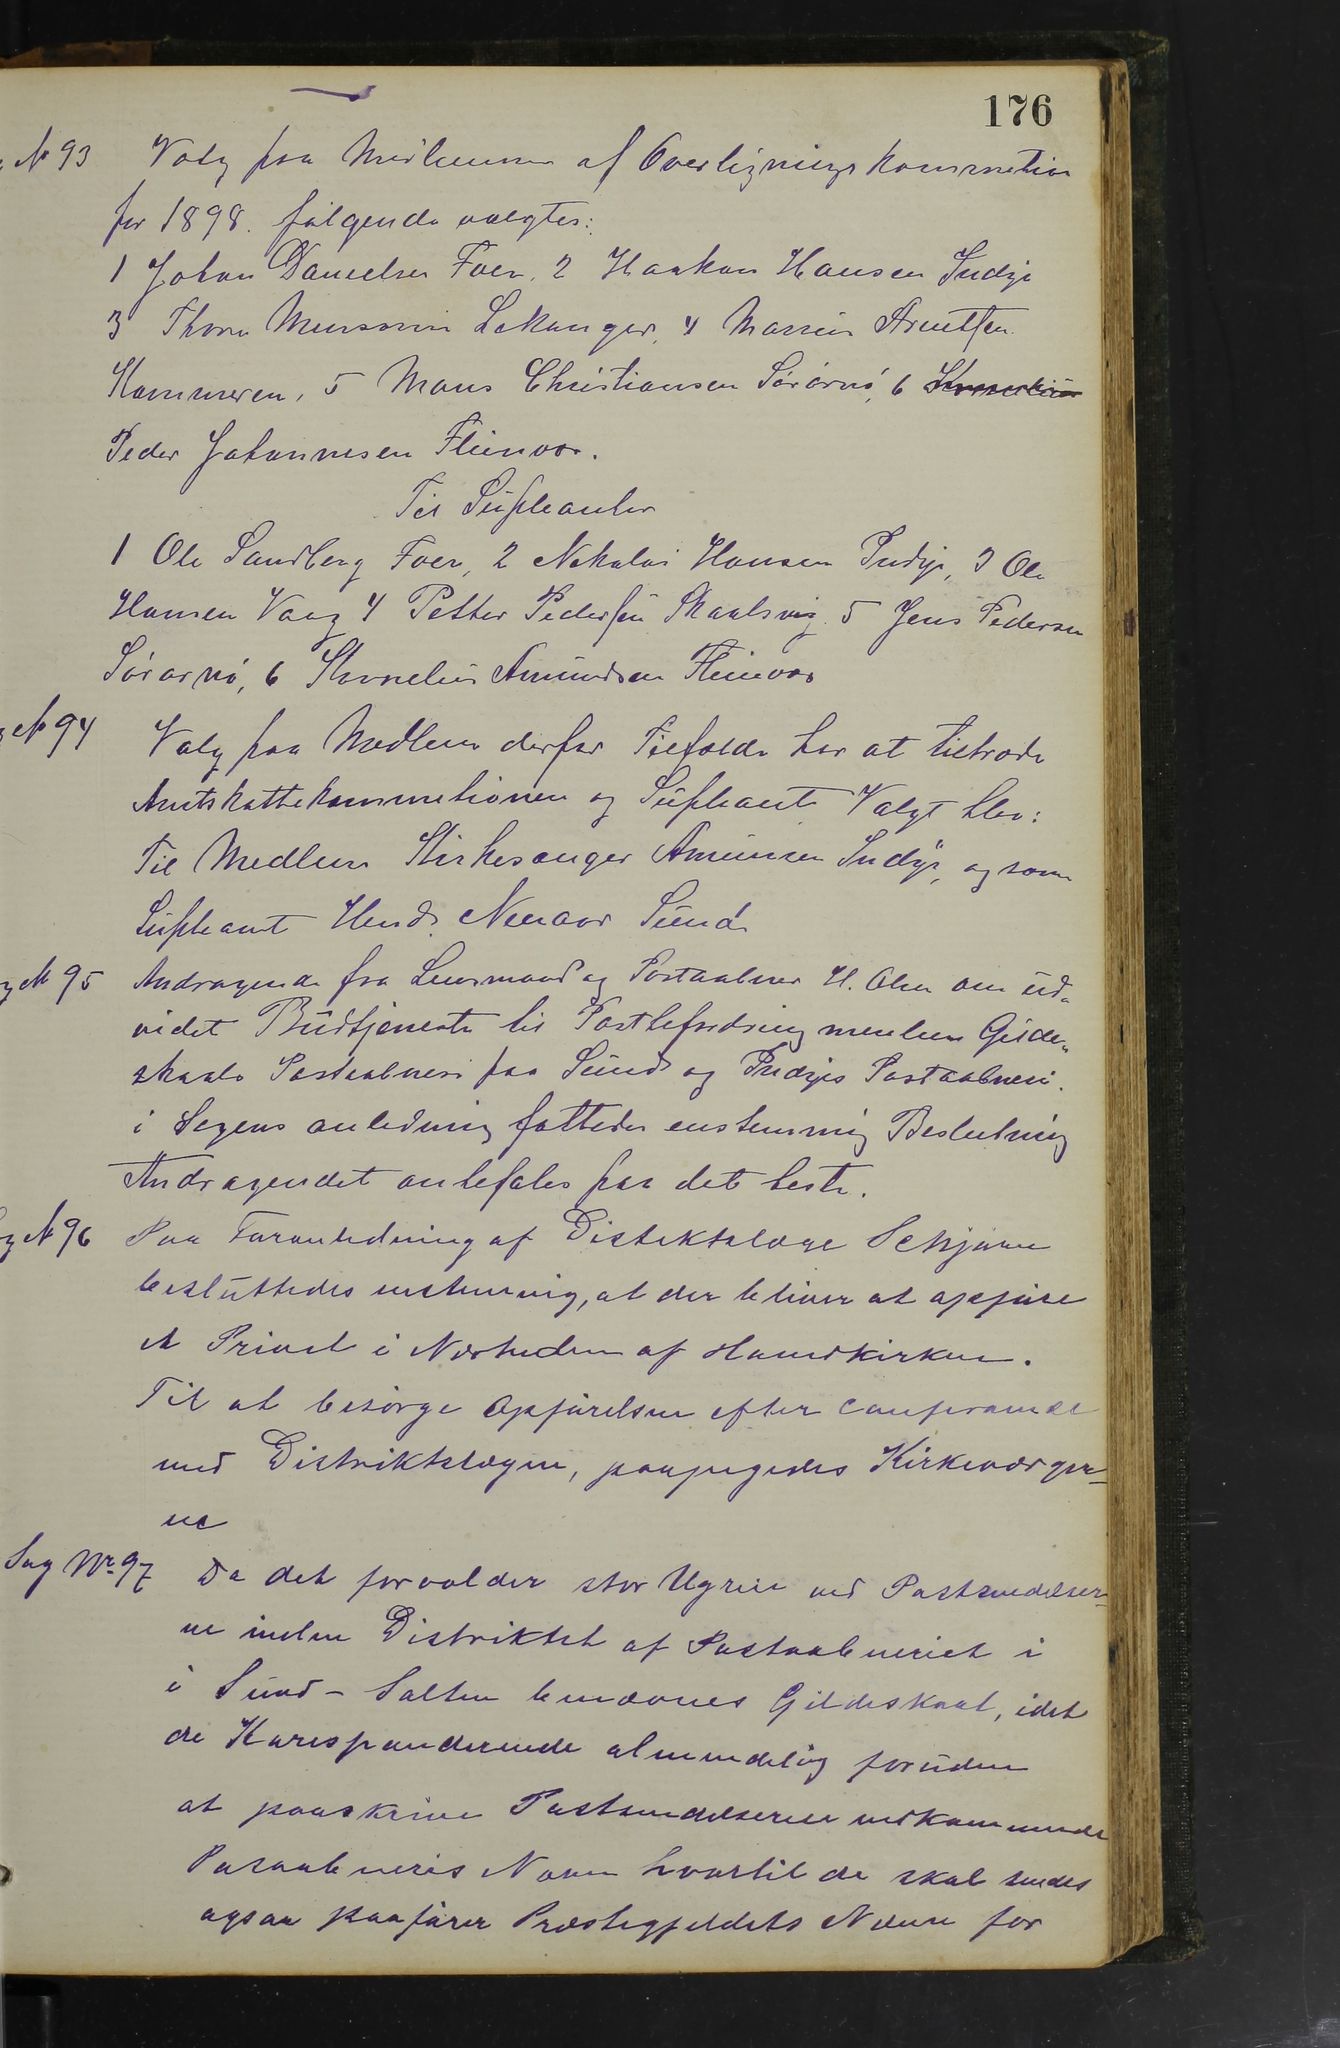 176
№ 93 Valg paa Medlemmer af Overligningskommetion
for 1898. følgende valgtes:
1 Johan Danielsen Foer, 2 Haakon Hansen Indyr
3 Thorn Lekanger, 4 Marius Arentsen
Hammeren, 5 Mons Christiansen Sørarnø, 6 Kornelius
Peder Johannesen Fleinvær.
Til Supleanter
1 Ole Sandberg Foer, 2 Nekolai Hansen Indyr, 3 Ole
Hansen Vaag 4 Petter Pedersen Skaalsvig 5 Jens Pedersen
Sørarnø, 6 Kornelius Amundsen Fleinvær
№ 94 Valg paa Medlem der for Tilfælde har at tiltræde
Amtskattekommetionen og Supleant Valgt blev:
Til Medlem Kirkesanger Amunsen Indyr, og som
Supleant Hend. Sund
№ 95 Andragende fra Lensmand og Postaabner H. Olsen om ud-
videt Budtjeneste til Postbefordring menlem Gilde-
skaals Postaabneri paa Sund og Indyrs Postaabneri.
i Sagens anledning fattedes enstemmig Beslutning
Andragendet anbefales paa det beste.
№ 96 Paa Foranledning af Distektslæge Schjønn
besluttedes enstemmig, at der bliver at opføre
et Privet i Nærheden af Hovedkirken.
Til at besørge Opførelsen efter Conferance
med Distriktslægen, paapegedes Kirkeværger-
ne
Sag Nr. 97 Da det forvolder stor Ugreie ved Postsendelser-
ne inden Distriktet af Postaabneriet i
i Sund - Salten benævnes Gildeskaal, idet
de Korespanderende almindelig foruden
at paaskrive Postsendelserne vedkommende
Posaabneris Navn hvortil de skal sendes
ogsaa paafører Præstegjeldets Navn for